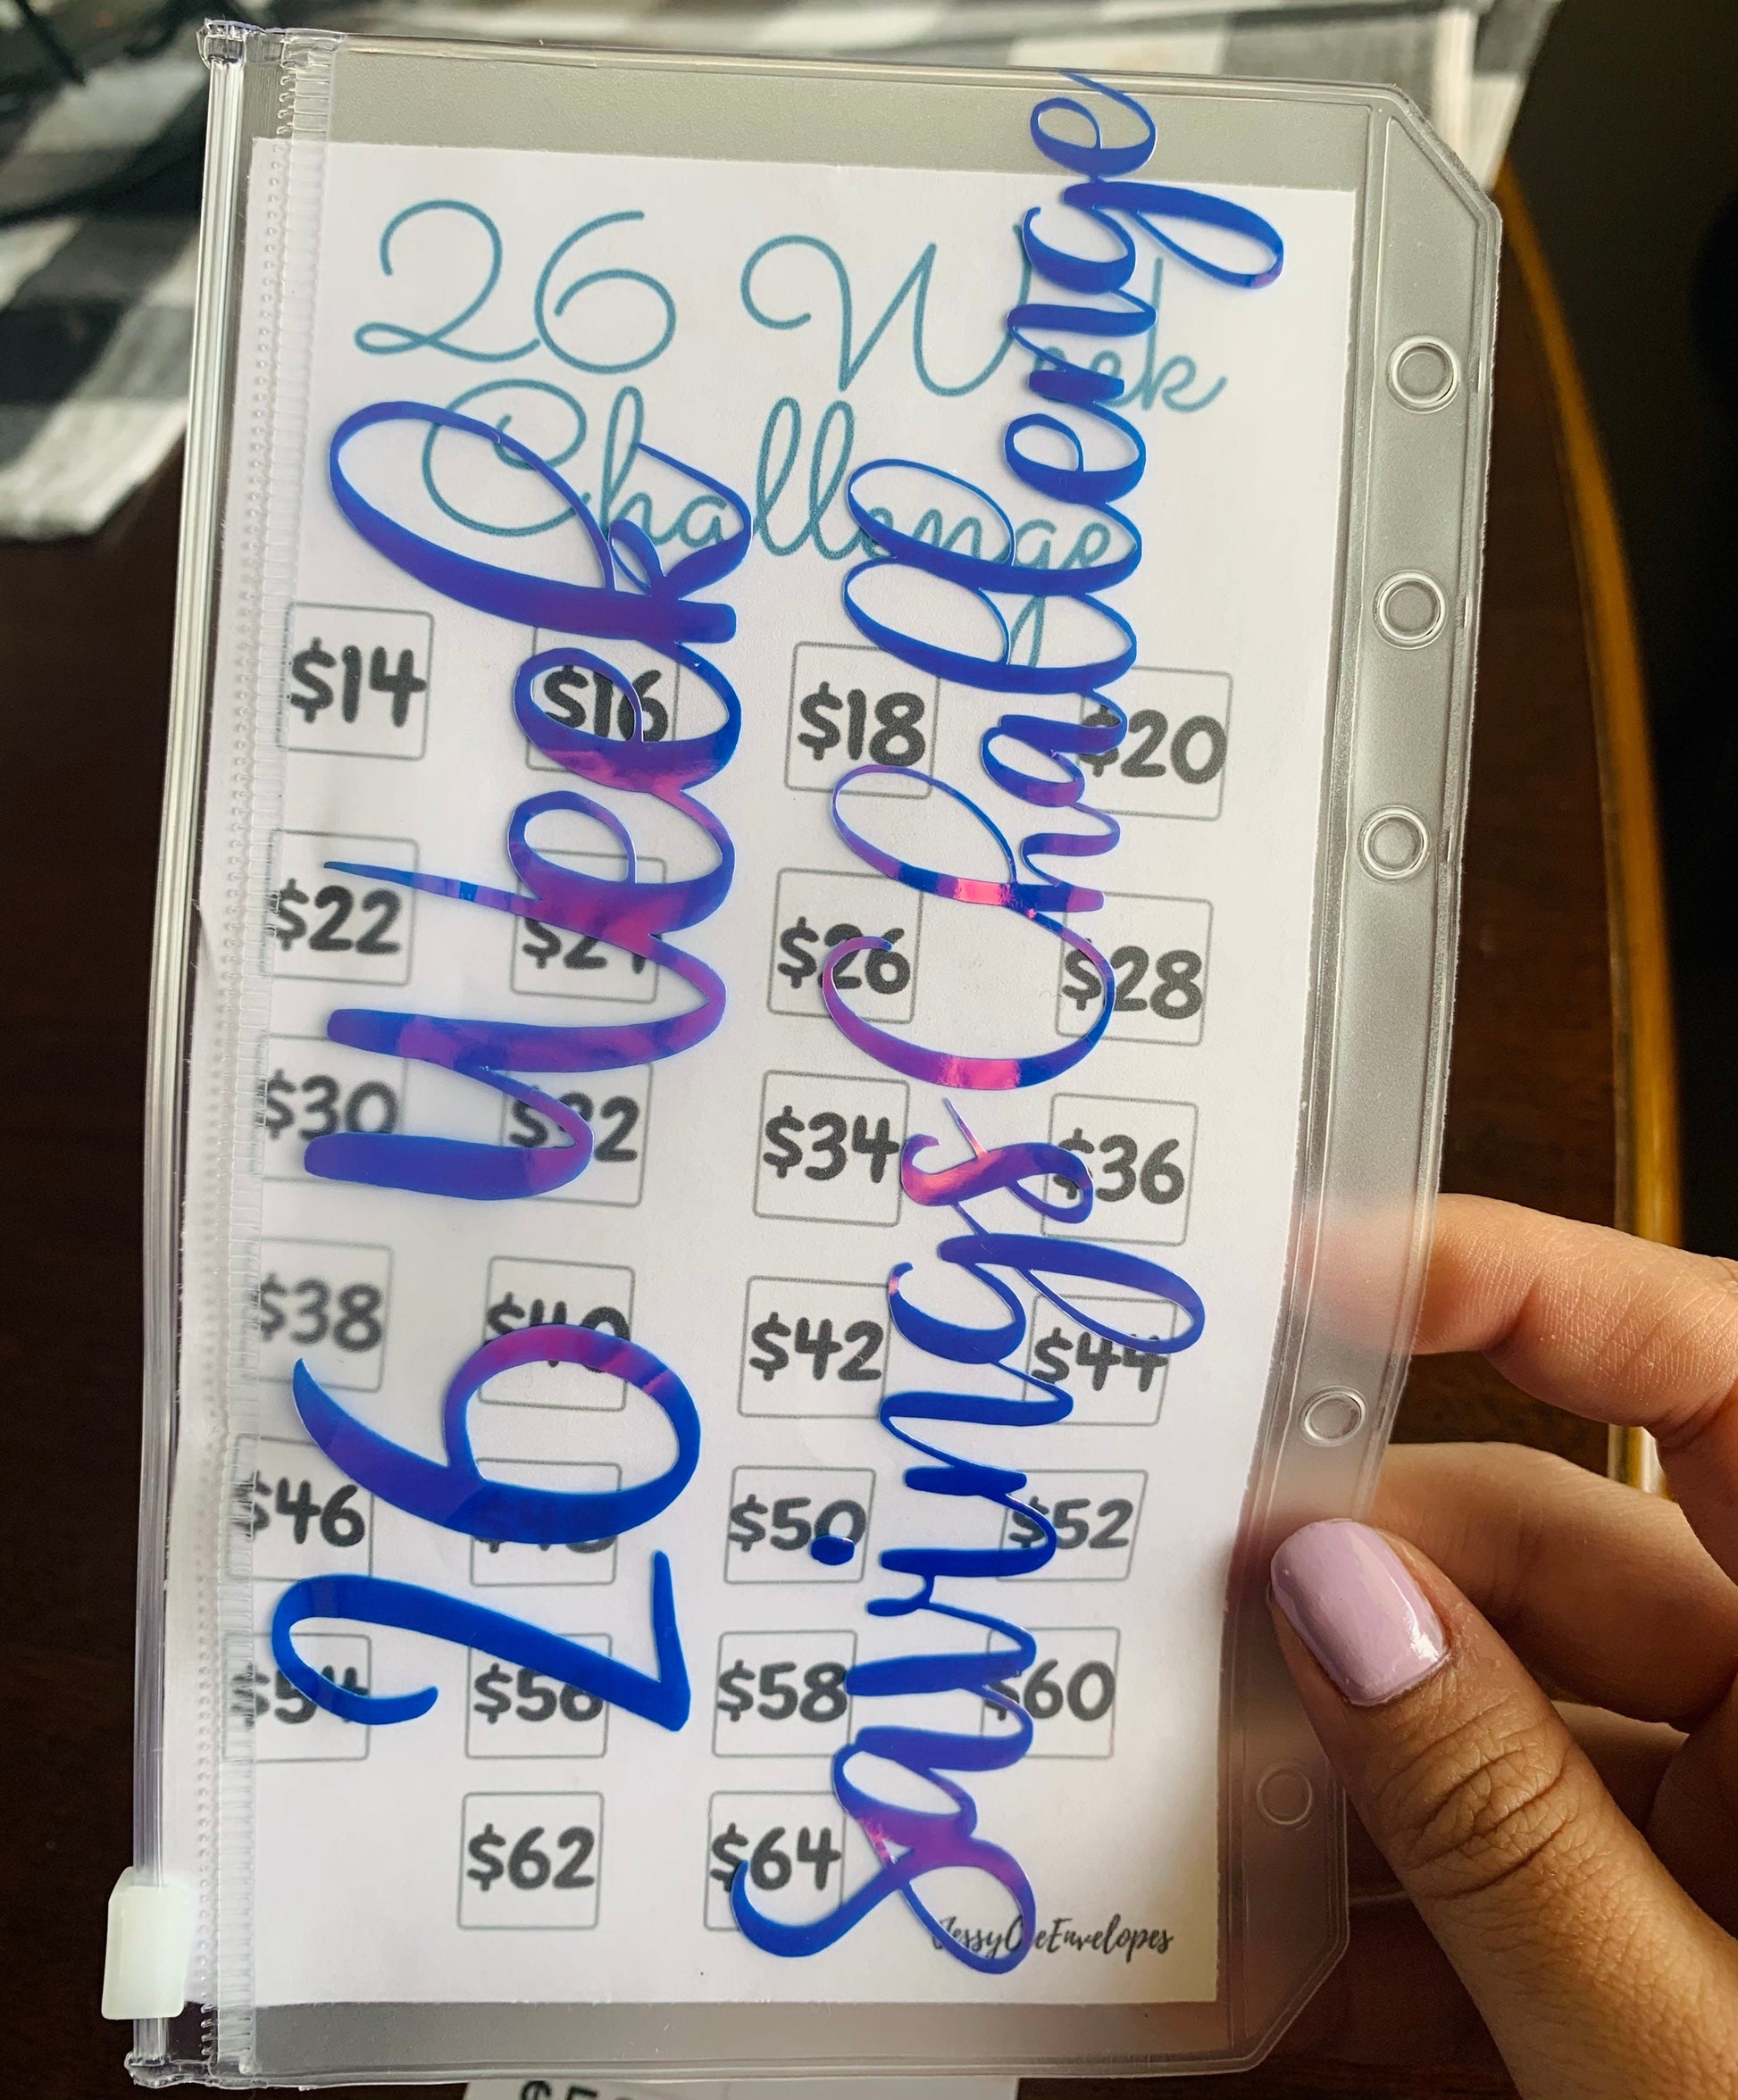 26 Week
Savings Challenge
26 Week
Challenge
$14 $16 $18 $20
$22 $24 $26 $28
$30 $32 $34 $36
$38 $40 $42 $44
$46 $48 $50 $52
$54 $56 $58 $60
$62 $64